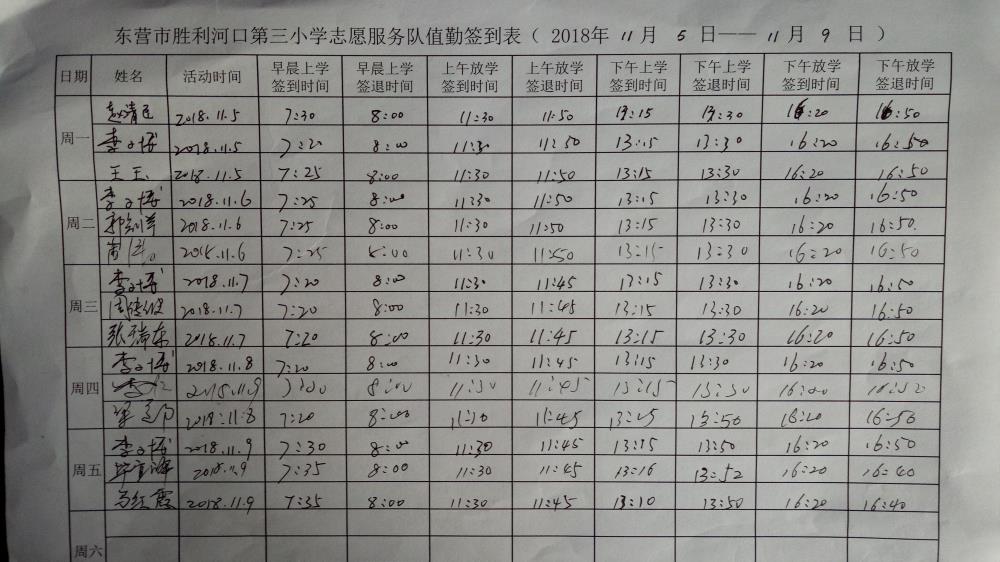 东营市胜利河口第三小学志愿服务队值勤签到表（2018年 11月 5 日——11月 9 日）
日期 姓名 活动时间 早晨上学签到时间 早晨上学签退时间 上午放学签到时间 上午放学签退时间 下午上学签到时间 下午上学签退时间 下午放学签到时间 下午放学签退时间
周一 2018.11.5 7:30 8:00 11:30 11:50 13:15 13:30 16:20 16:50
2018.11.5 7:20 8:00 11:30 11:50 13:15 13:30 16:20 16:50
2018.11.5 7:25 8:00 11:30 11:50 13:15 13:30 16:20 16:50
周二 2018.11.6 7:25 8:00 11:30 11:50 13:15 13:30 16:20 16:50
2018.11.6 7:25 8:00 11:30 11:50 13:15 13:30 16:20 16:50
7:25 8:00 11:30 11:50 13:15 13:30 16:20 16:50
周三 2018.11.7 7:20 8:00 11:30 11:45 13:15 13:30 16:20 16:50
2018.11.7 7:20 8:00 11:30 11:45 13:15 13:30 16:20 16:50
张瑞东 2018.11.7 7:20 8:00 11:30 11:45 13:15 13:30 16:20 16:50
周四 2018.11.8 7:20 8:00 11:30 11:45 13:15 13:30 16:20 16:50
8:00 11:45 13:15
2018.11.8 7:20 8:00 11:45 13:50 16:20 16:50
周五 2018.11.9 7:30 8:00 11:30 11:45 13:15 13:50 16:20 16:50
2018.11.9 7:35 8:00 11:30 11:45 13:16 13:52 16:20 16:40
马红霞 2018.11.9 7:35 8:00 11:30 11:45 13:10 13:50 16:20 16:40
周六